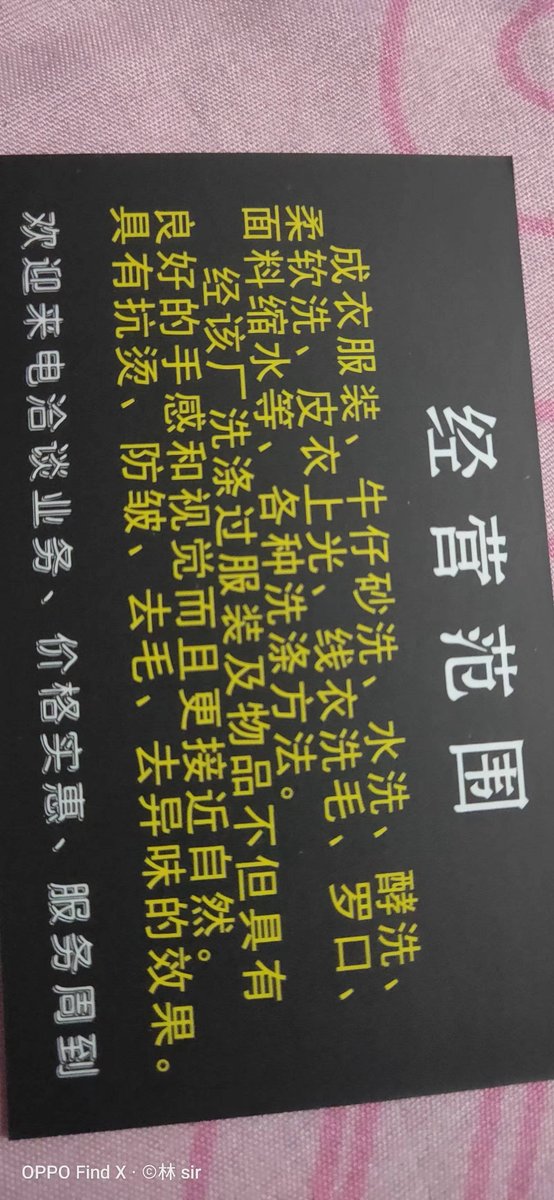 经营范围
成衣服装、牛仔砂洗、水洗、酵洗、
柔软洗、皮衣上光、线衣洗毛、罗口、
面料缩水等、各种洗涤方法。
经该厂洗涤过服装及物品不但具有
良好的手感和视觉而且更接近自然。
具有抗烫、防皱、去毛、去异味的效果。
欢迎来电洽谈业务、价格实惠、服务周到
OPPO Find X · ©林 sir